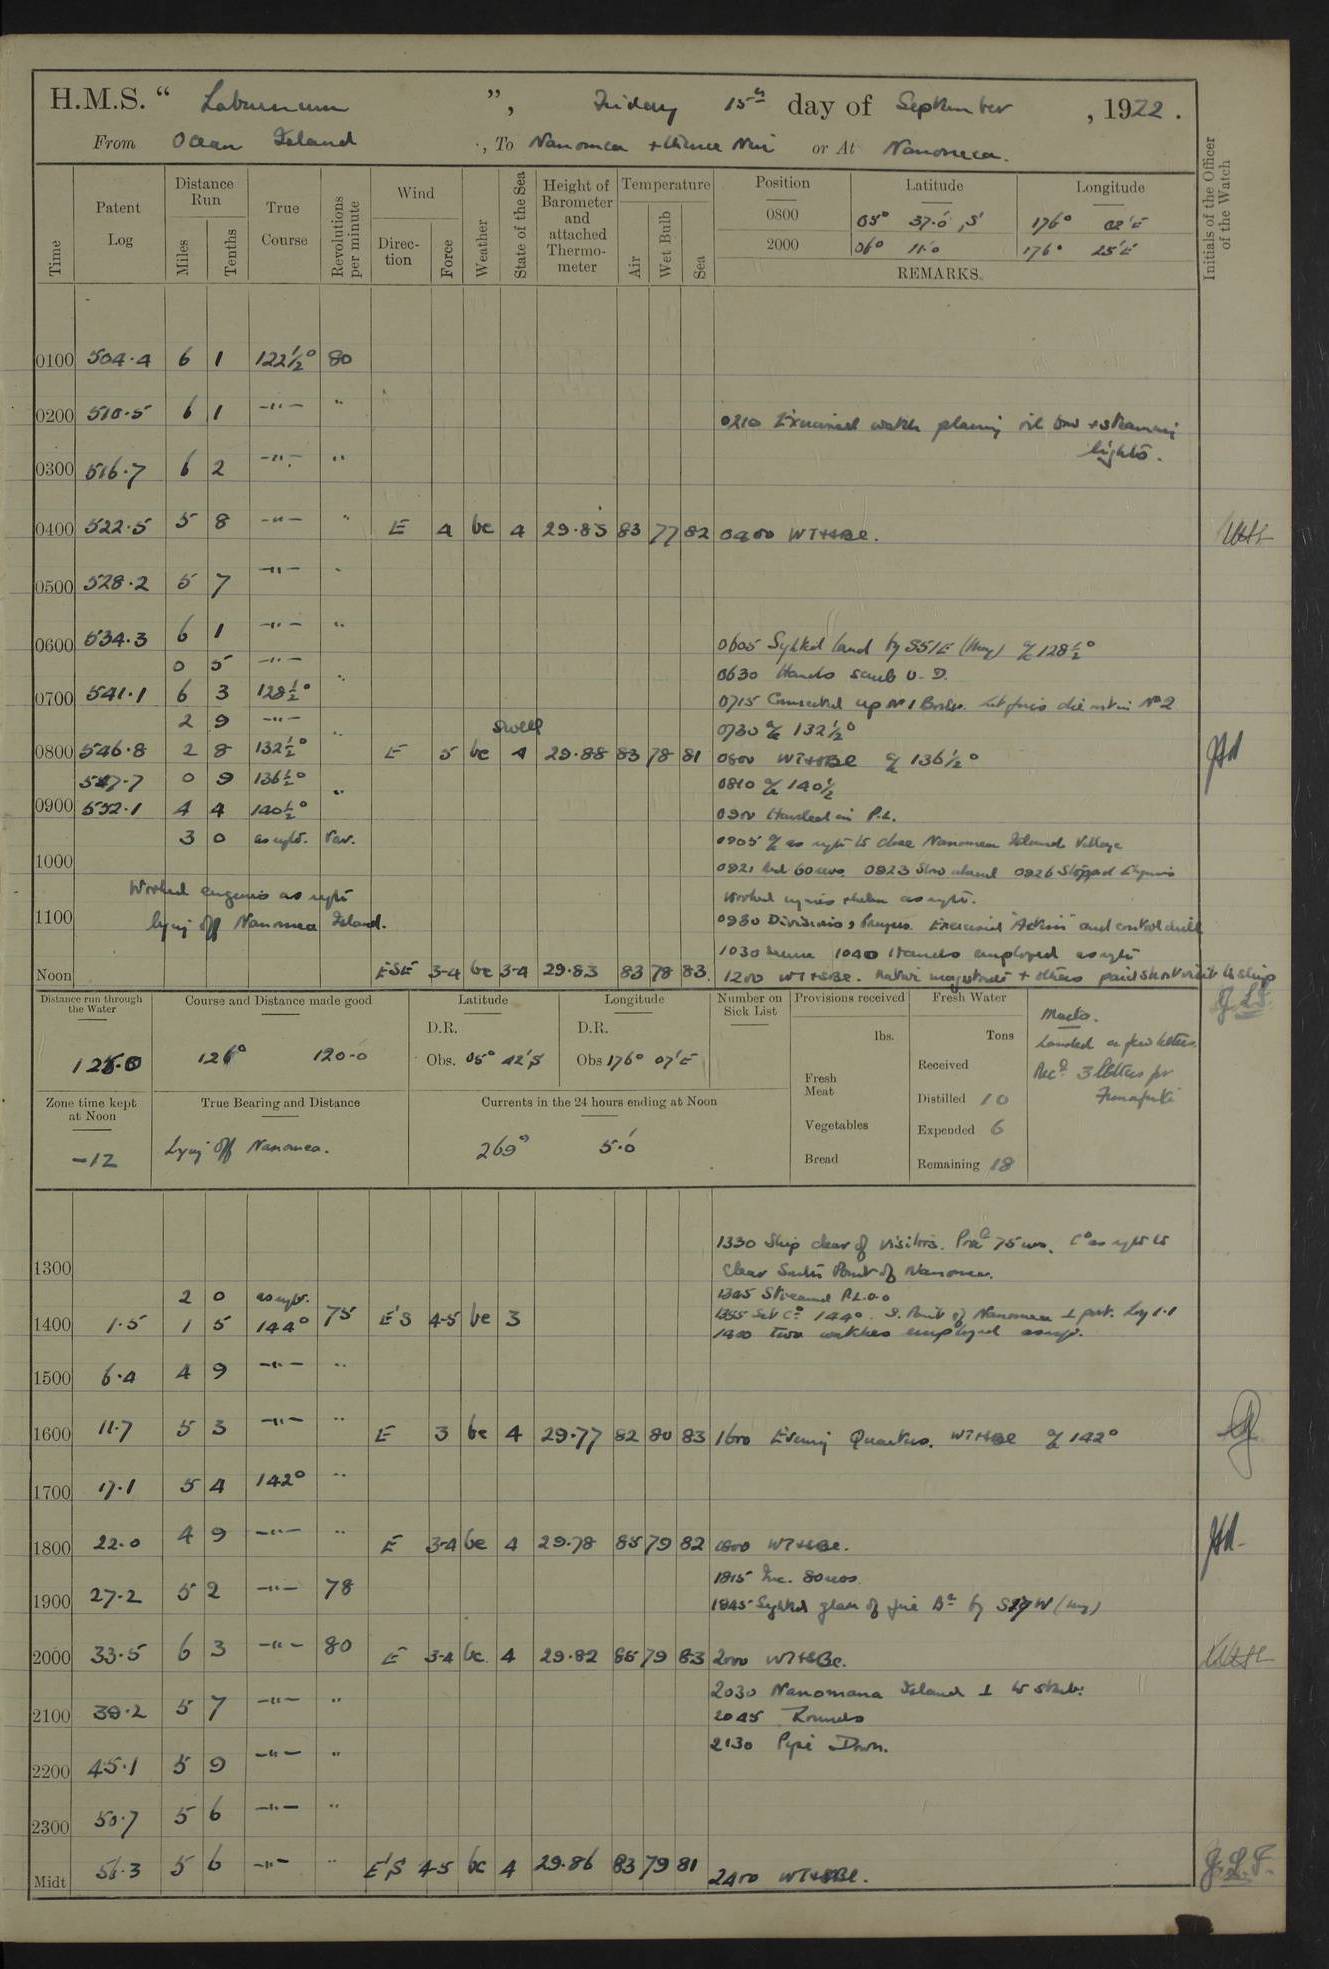 H.M.S. “ Laburnum ”, Friday 15th day of September, 1922.
From Ocean Island, To Nanomea + thence Niu or At Nanomea.
Time
Patent Log
Distance Run
Miles
Tenths
True Course
Revolutions per minute
Wind
Direction
Force
Weather
State of the Sea
Height of Barometer and attached Thermometer
Temperature
Air
Wet Bulb
Sea
Position Latitude Longitude
0800 05° 37.0' S 176° 02' E
2000 06° 11.0 176° 25' E
REMARKS.
Initials of the Officer of the Watch
0100 504.4 6 1 122½° 80
0200 510.5 6 1 -"- "
0210 Exercised watch placing oil bow + steaming lights.
0300 516.7 6 2 -"- "
0400 522.5 5 8 -"- " E 4 bc 4 29.83 83 77 82 0400 WT+SBE.
0500 528.2 5 7 -"- "
0600 534.3 6 1 -"- " 0605 Sighted land by S51E (Mag) a/c 128½°
0 5 -"- 0630 Hands scrub U.D.
0700 541.1 6 3 128½° " 0715 Connected up No 1 Boiler. Let fires die out in No 2
2 9 -"- 0730 a/c 132½°
swell
0800 546.8 2 8 132½° " E 5 bc 4 29.88 83 78 81 0800 WT+SBE a/c 136½°
547.7 0 9 136½° 0810 a/c 140½
0900 552.1 4 4 140½° " 0900 Handed in P.L.
3 0 as reqte. Var. 0905 a/c as reqte to close Nanomea Island Village
1000 0921 Red 60 revs. 0923 Slow ahead 0926 Stopped Engines
Worked engines as reqte worked engines + helm as reqte.
1100 lying off Nanomea Island. 0930 Divisions, Prayers. Exercised "Action" and control drill
1030 1040 Hands employed as reqte
Noon ESE 3-4 bc 3-4 29.83 83 78 83. 1200 WT+SBE. Native magistrate + others paid short visit to ship
J.L.F.
Distance run through the Water
125.0
Course and Distance made good
126° 120.0
Latitude
D.R.
Obs. 05° 42' S
Longitude
D.R.
Obs 176° 07' E
Number on Sick List
Provisions received
lbs.
Fresh Meat
Vegetables
Bread
Fresh Water
Tons
Received
Distilled 10
Expended 6
Remaining 18
Mails.
Landed a few letters.
Recd 3 letters for
Funafuti
Zone time kept at Noon
-12
True Bearing and Distance
Lying off Nanomea.
Currents in the 24 hours ending at Noon
269° 5.0'
1330 Ship clear of visitors. Procd 75 revs. Co as reqte to
1300 clear South Point of Nanomea.
2 0 as reqte. 1345 Streamed P.L. 0.0
1400 1.5 1 5 144° 75 E'S 4-5 bc 3 1355 Set Co 144°. S. Point of Nanomea ⊥ port. Log 1.1
1400 Two watches employed as reqte.
1500 6.4 4 9 -"- "
1600 11.7 5 3 -"- " E 3 bc 4 29.77 82 80 83 1600 Evening Quarters. WT+SBE a/c 142°
1700 17.1 5 4 142° "
1800 22.0 4 9 -"- " E 3-4 bc 4 29.78 85 79 82 1800 WT+SBE.
1815 Inc. 80 revs.
1900 27.2 5 2 -"- 78 1845 Sighted glare of fire Bg by W (Mag)
2000 33.5 6 3 -"- 80 E 3-4 bc 4 29.82 85 79 83 2000 WT+SBE.
2030 Nanomana Island ⊥ to starb.
2100 39.2 5 7 -"- " 2045 Rounds
2130 Pipe Down.
2200 45.1 5 9 -"- "
2300 50.7 5 6 -"- "
Midt 56.3 5 6 -"- " E'S 4-5 bc 4 29.86 83 79 81 2400 WT+SBE.
J.L.F.